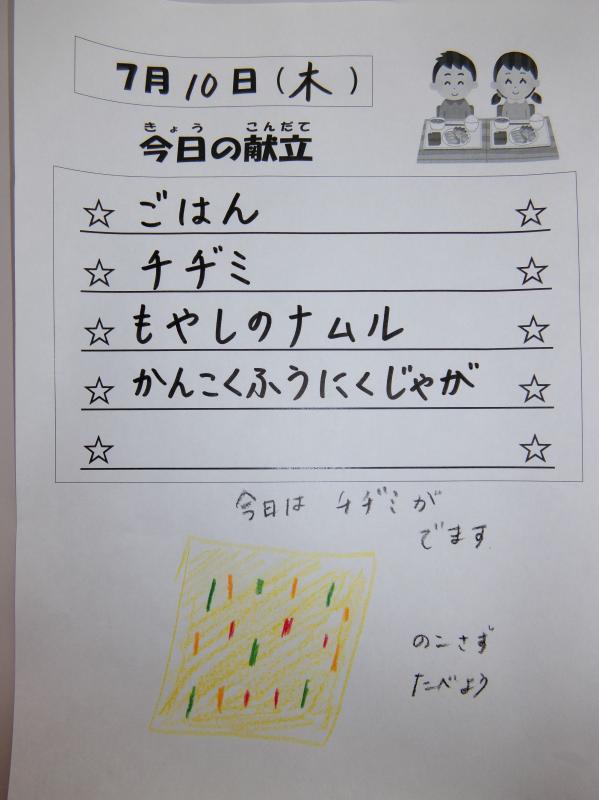 7月10日(木)
きょう こんだて
今日の献立
☆ ごはん ☆
☆ チヂミ ☆
☆ もやしのナムル ☆
☆ かんこくふうにくじゃが ☆
☆ ☆
今日は チヂミが
でます
のこさず
たべよう